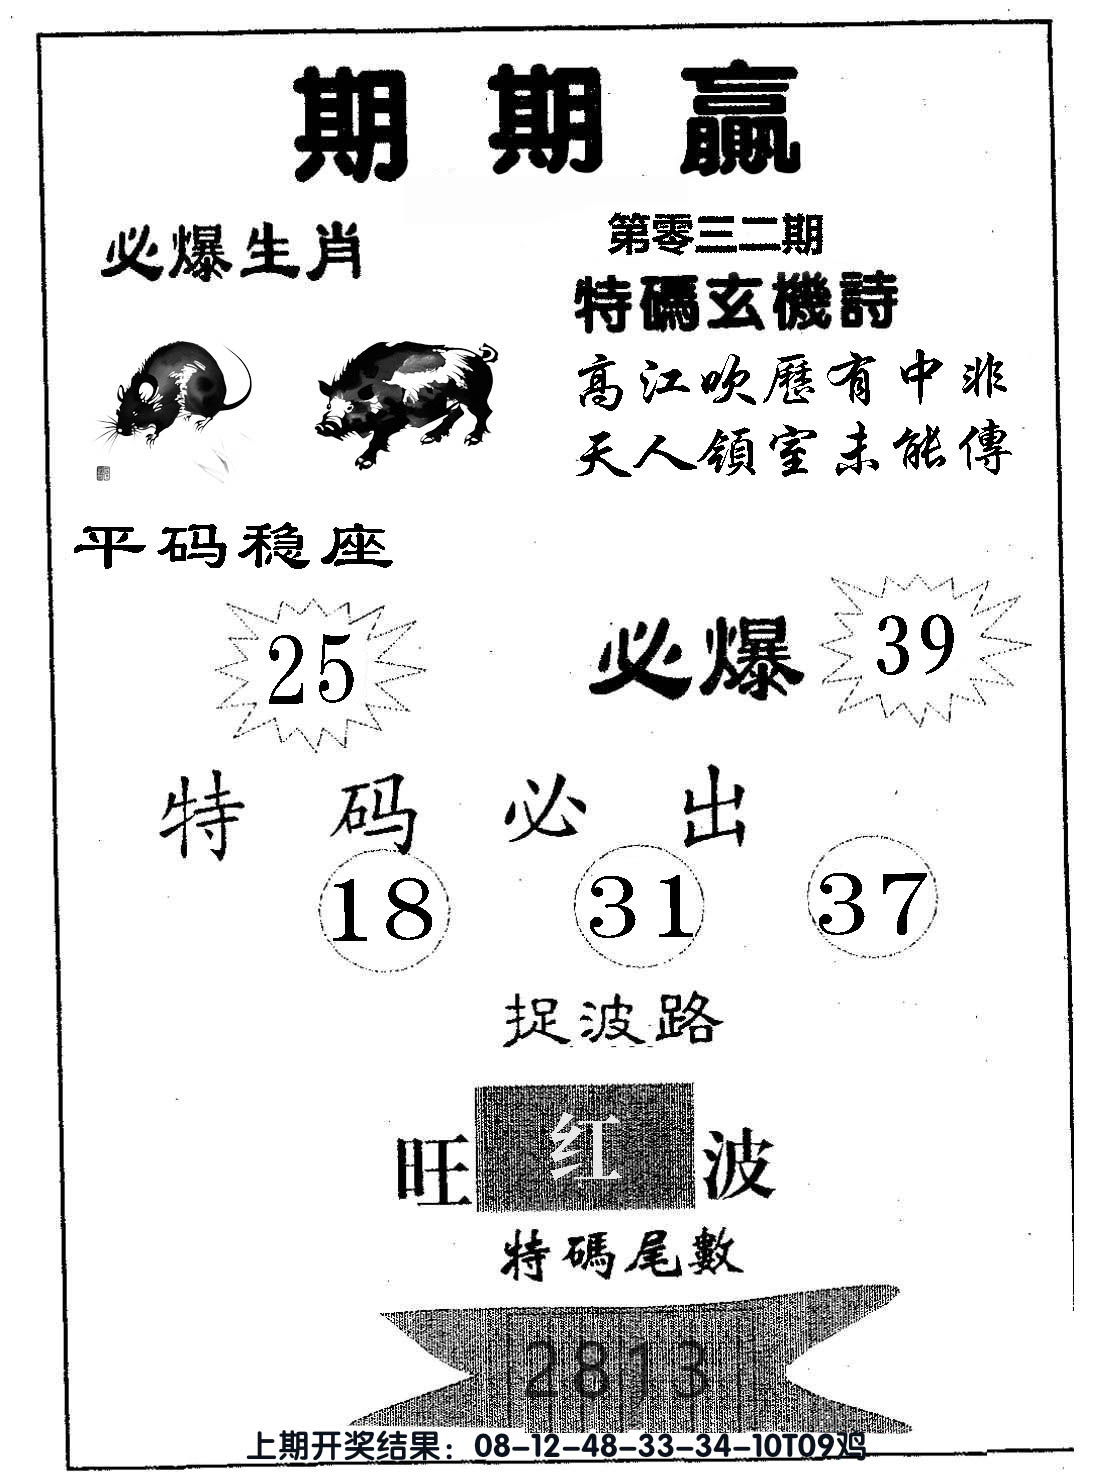 期期赢
必爆生肖
第零三二期
特碼玄機詩
高江吹歷有中非
天人領室未能傳
平码稳座
25
必爆
39
特码必出
18 31 37
捉波路
旺红波
特碼尾數
2813
上期开奖结果：08-12-48-33-34-10T09鸡